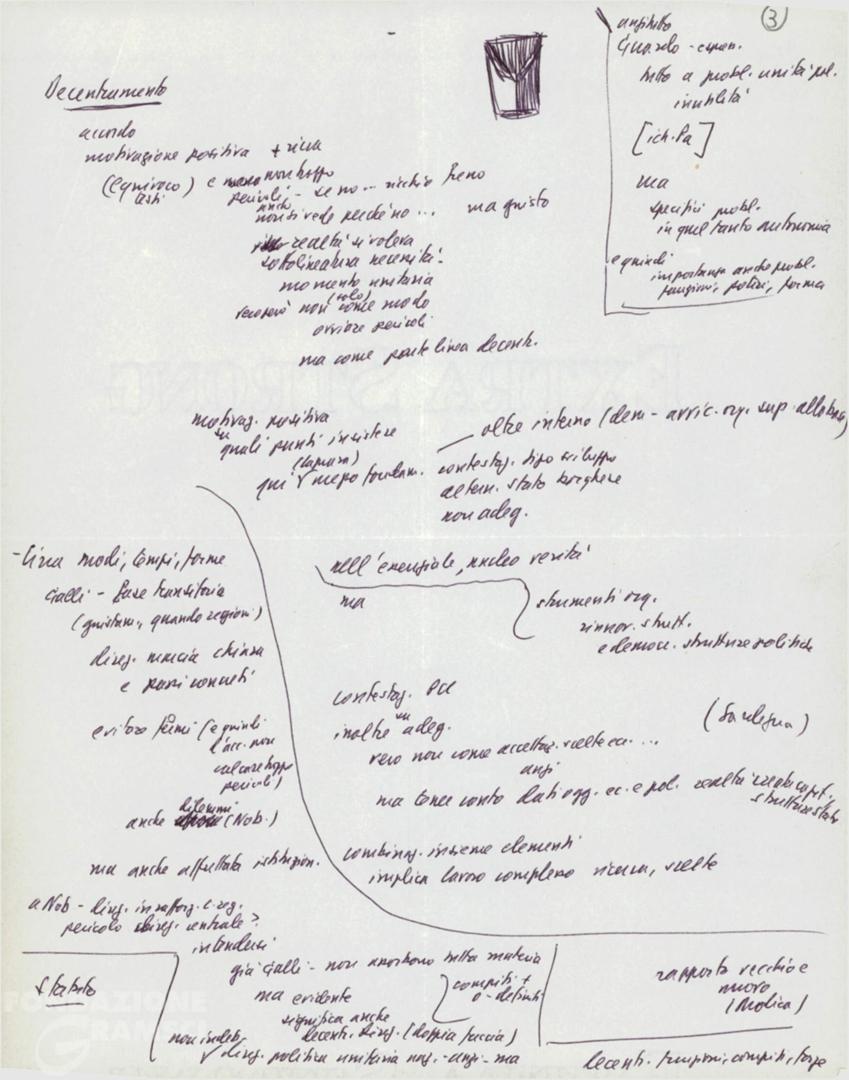 3
Decentramento
accordo
motivazione positiva + ricca
(equivoco) e non troppo
testi pericoli - se no ... rischio freno
anche
non si vede perché no ... ma giusto
realtà si voleva
sottolineatura necessità
momento unitaria
(solo)
non come modo
ovviare pericoli
ma come parte linea decentr.
antitutto
- espon.
tutto a probl. unità pol.
inutilità
[ich. Pa]
ma
specifici probl.
in quel tanto autonomia
e quindi
importanza anche probl.
funzioni, poteri, forma
motivaz. positiva
su
quali punti insistere
qui nesso fondam.
oltre interno (dem - avvic. org. sup. alla base)
contestaz. tipo sviluppo
altern. stato borghese
non adeg.
- Circa modi, tempi, forme
Cialli - fase transitoria
(giustam., quando regioni)
direz. marcia chiara
e passi concreti
evitare fermi (e quindi
l'acc. non
calcare troppo
pericoli)
anche dilemmi (Nob.)
ma anche affrettata istituzion.
a Nob - direz. in rafforz. c. reg.
pericolo direz. centrale?
intenderci
nell'essenziale, nucleo verità
ma
strumenti org.
rinnov. strutt.
e democr. strutture politiche
contestaz. PCI
inoltre adeg. (Sardegna)
vero non come accettaz. scelte ec. ...
anzi
ma tener conto dati ogg. ec. e pol. realtà creata capit.
strutture stato
combinaz. insieme elementi
implica lavoro complesso ricerca, scelte
Statuto
già Cialli - non esaurisce tutta materia
ma evidente
compiti +
o - definiti
significa anche
decentr. direz. (doppia faccia)
non indeb.
direz. politica unitaria naz. - anzi - ma
rapporto vecchio e
nuovo
(Modica)
decentr. funzioni, compiti, forze
FONDAZIONE
GRAMSCI
EXTRA STRONG